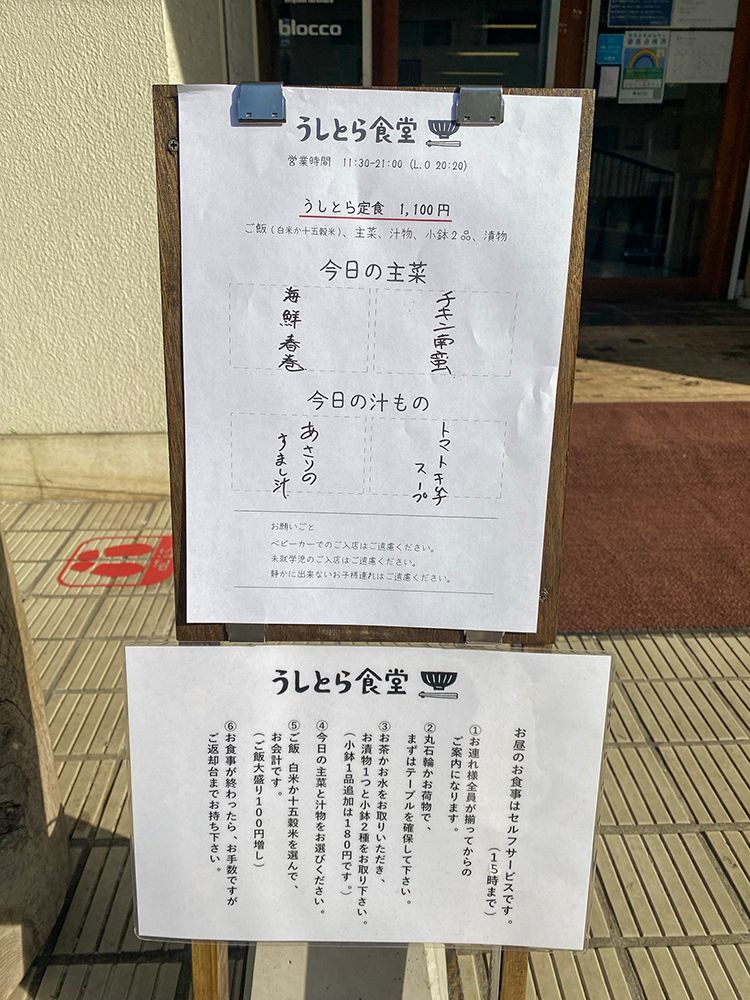 blocco
うしとら食堂
営業時間 11:30-21:00 (L.O 20:20)
うしとら定食 1,100円
ご飯(白米か十五穀米)、主菜、汁物、小鉢2品、漬物
今日の主菜
チキン南蛮
海鮮春巻
今日の汁もの
トマトキムチ
スープ
あさりの
すまし汁
お願いごと
ベビーカーでのご入店はご遠慮ください。
未就学児のご入店はご遠慮ください。
静かに出来ないお子様連れはご遠慮ください。
うしとら食堂
お昼のお食事はセルフサービスです。
(15時まで)
①お連れ様全員が揃ってからの
ご案内になります。
②丸石輪かお荷物で、
まずはテーブルを確保して下さい。
③お茶かお水をお取りいただき、
お漬物1つと小鉢2種をお取り下さい。
(小鉢1品追加は180円です。)
④今日の主菜と汁物をお選びください。
⑤ご飯 白米か十五穀米を選んで、
お会計です。
(ご飯大盛り100円増し)
⑥お食事が終わったら、お手数ですが
ご返却台までお持ち下さい。